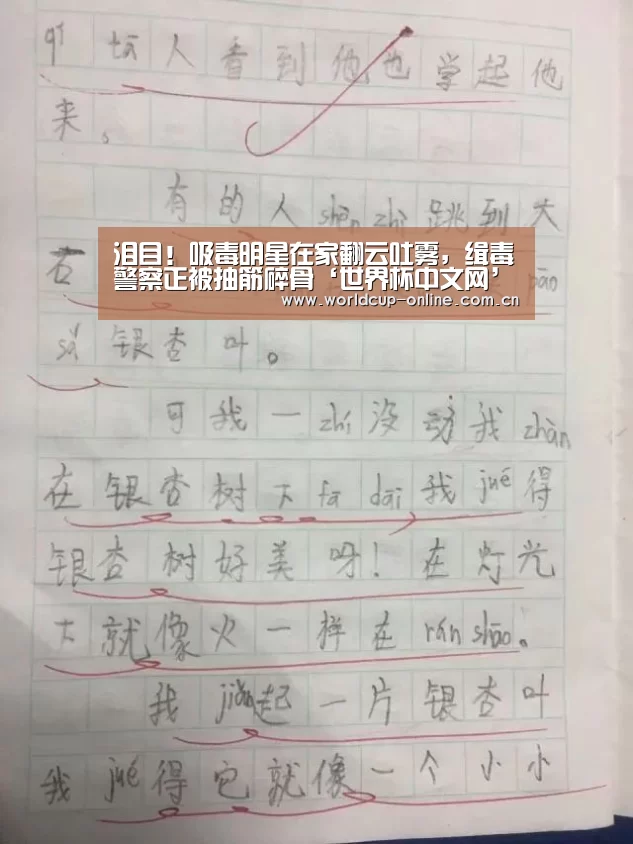 qí tā人看到他也学起他
来。
有的人shèn zhì跳到大
泪目！吸毒明星在家翻云吐雾，缉毒
石
警察正被抽筋碎骨‘世界杯中文网’
pāo
www.worldcup-online.com.cn
sǎ银杏叶。
可我一zhí没动我zhàn
在银杏树下fā dāi我jué得
银杏树好美呀！在灯光
下就像火一样在rán shāo。
我jiǎn起一片银杏叶
我jué得它就像一个小小